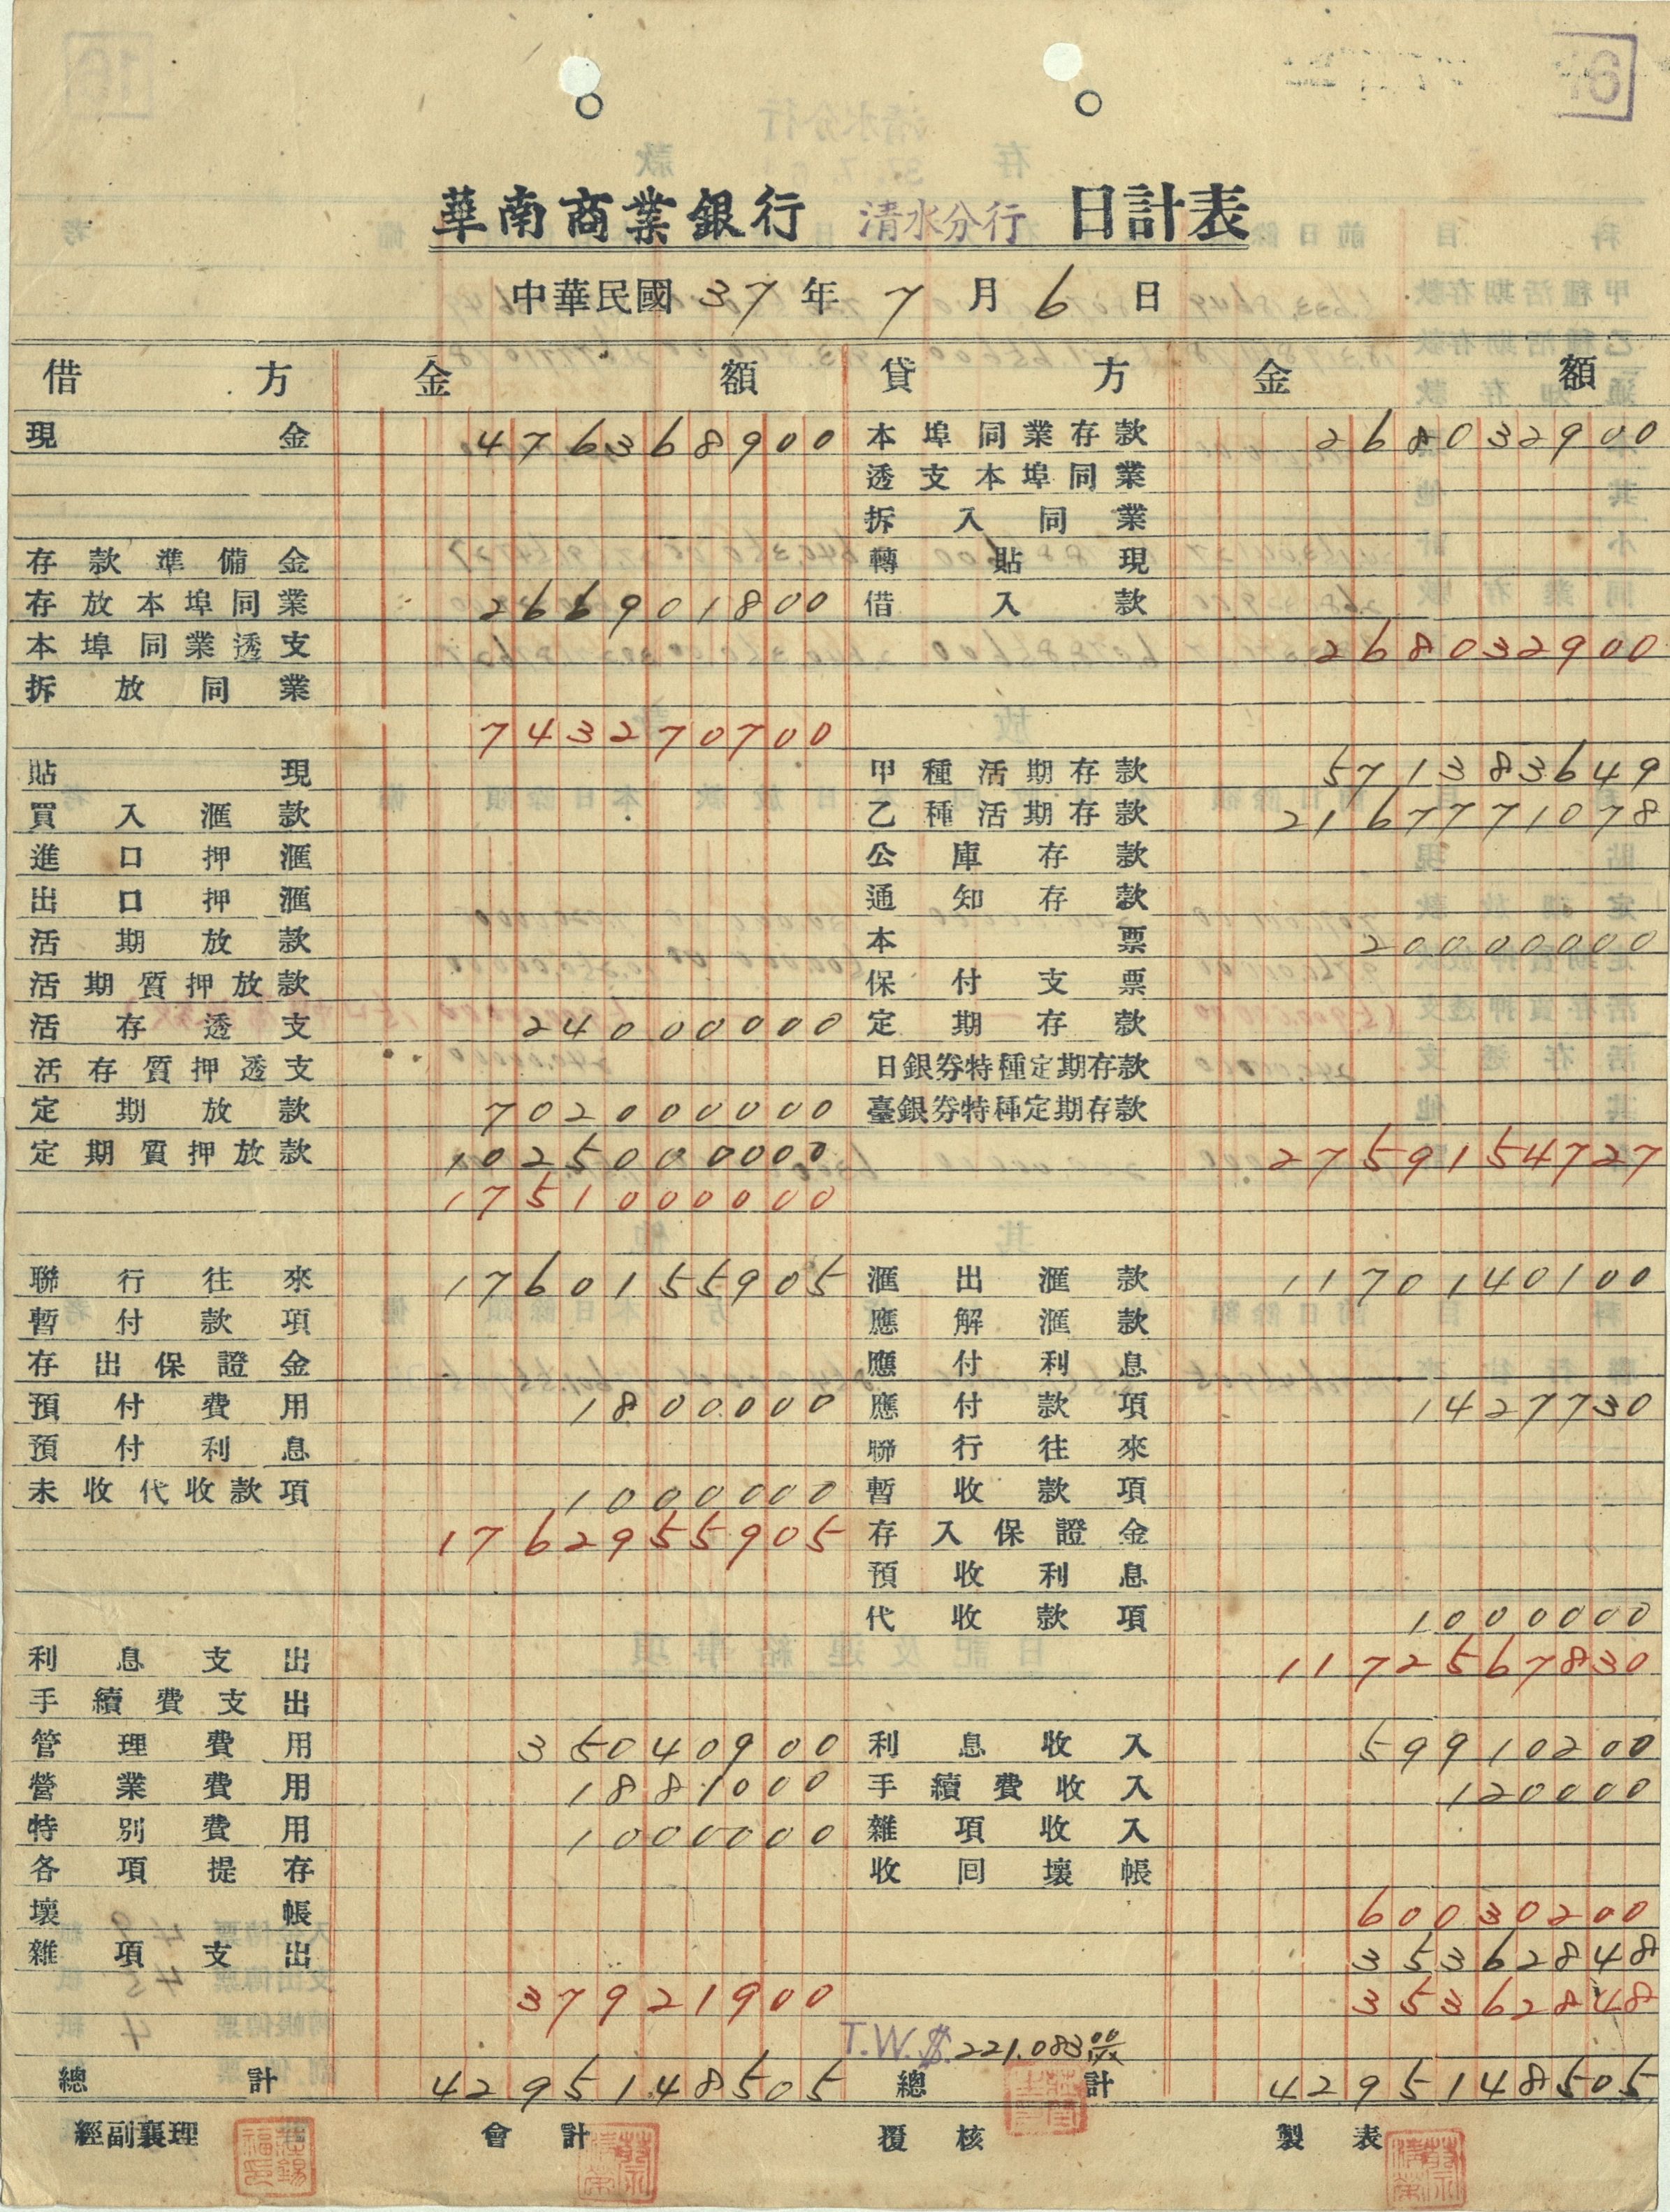 16
華南商業銀行 清水分行 日計表
中華民國 37 年 7 月 6 日
借方 金額 貸方 金額
現金 476368900 本埠同業存款 268032900
透支本埠同業
拆入同業
存款準備金 轉貼現
存放本埠同業 266901800 借入款
本埠同業透支 268032900
拆放同業
743270700
貼現 甲種活期存款 571383649
買入滙款 乙種活期存款 2167771078
進口押滙 公庫存款
出口押滙 通知存款
活期放款 本票 20000000
活期質押放款 保付支票
活存透支 24000000 定期存款
活存質押透支 日銀券特種定期存款
定期放款 702000000 臺銀券特種定期存款
定期質押放款 1025000000 2759154727
1751000000
聯行往來 1760155905 滙出滙款 1170140100
暫付款項 應解滙款
存出保證金 應付利息
預付費用 1800000 應付款項 1427730
預付利息 聯行往來
未收代收款項 1000000 暫收款項
1762955905 存入保證金
預收利息
代收款項 1000000
利息支出 1172567830
手續費支出
管理費用 35040900 利息收入 59910200
營業費用 1881000 手續費收入 120000
特別費用 1000000 雜項收入
各項提存 收回壞帳
壞帳 60030200
雜項支出 35362848
37921900 35362848
T.W.$. 221.083.00
總計 4295148505 總計 4295148505
經副襄理 會計 覆核 製表